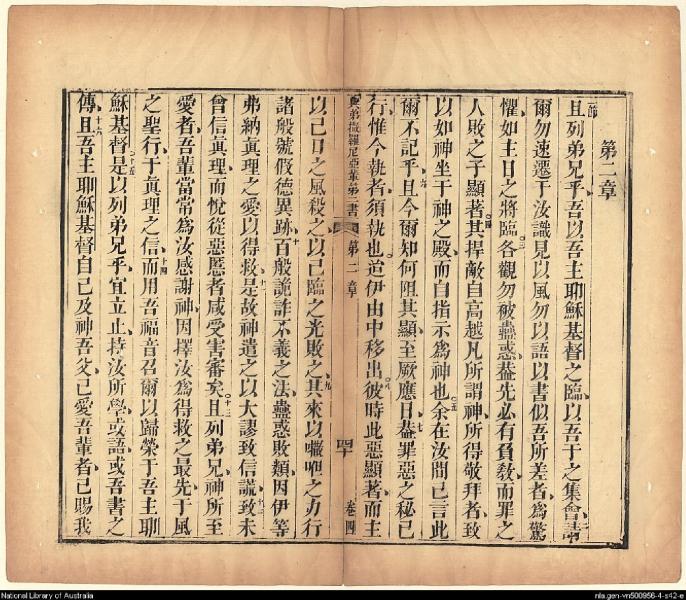 第二章
且列弟兄乎吾以吾主耶穌基督之臨以吾于之集會請
爾勿速遷于汝識見以風勿以語以書似吾所差者為驚
懼如主日之將臨各觀勿被蠱惑葢先必有負教而罪之
人敗之子顯著其捍敵自高越凡所謂神所得敬拜者致
以如神坐于神之殿而自指示為神也余在汝間已言此
爾不記乎且今爾知何阻其顯至厥應日葢罪惡之秘已
行惟今執者須執也迨伊由中移出彼時此惡顯著而主
弟撒羅尼亞輩第二書 第二章 卷四
以己口之風殺之以己臨之光敗之其來以𡃤之力行
諸般號假德異跡百般詭詐不義之法蠱惑敗類因伊等
弗納真理之愛以得救是故神遣之以大謬致信謊致未
曾信真理而悅從惡慝者咸受害審矣且列弟兄神所至
愛者吾輩當常為汝感謝神因擇汝為得救之最先于風
之聖行于真理之信而用吾福音召爾以歸榮于吾主耶
穌基督是以列弟兄乎宜立止持汝所學或語或吾書之
傳且吾主耶穌基督自己及神吾父已愛吾輩者已賜我
National Library of Australia
nla.gen-vn500956-4-s42-e